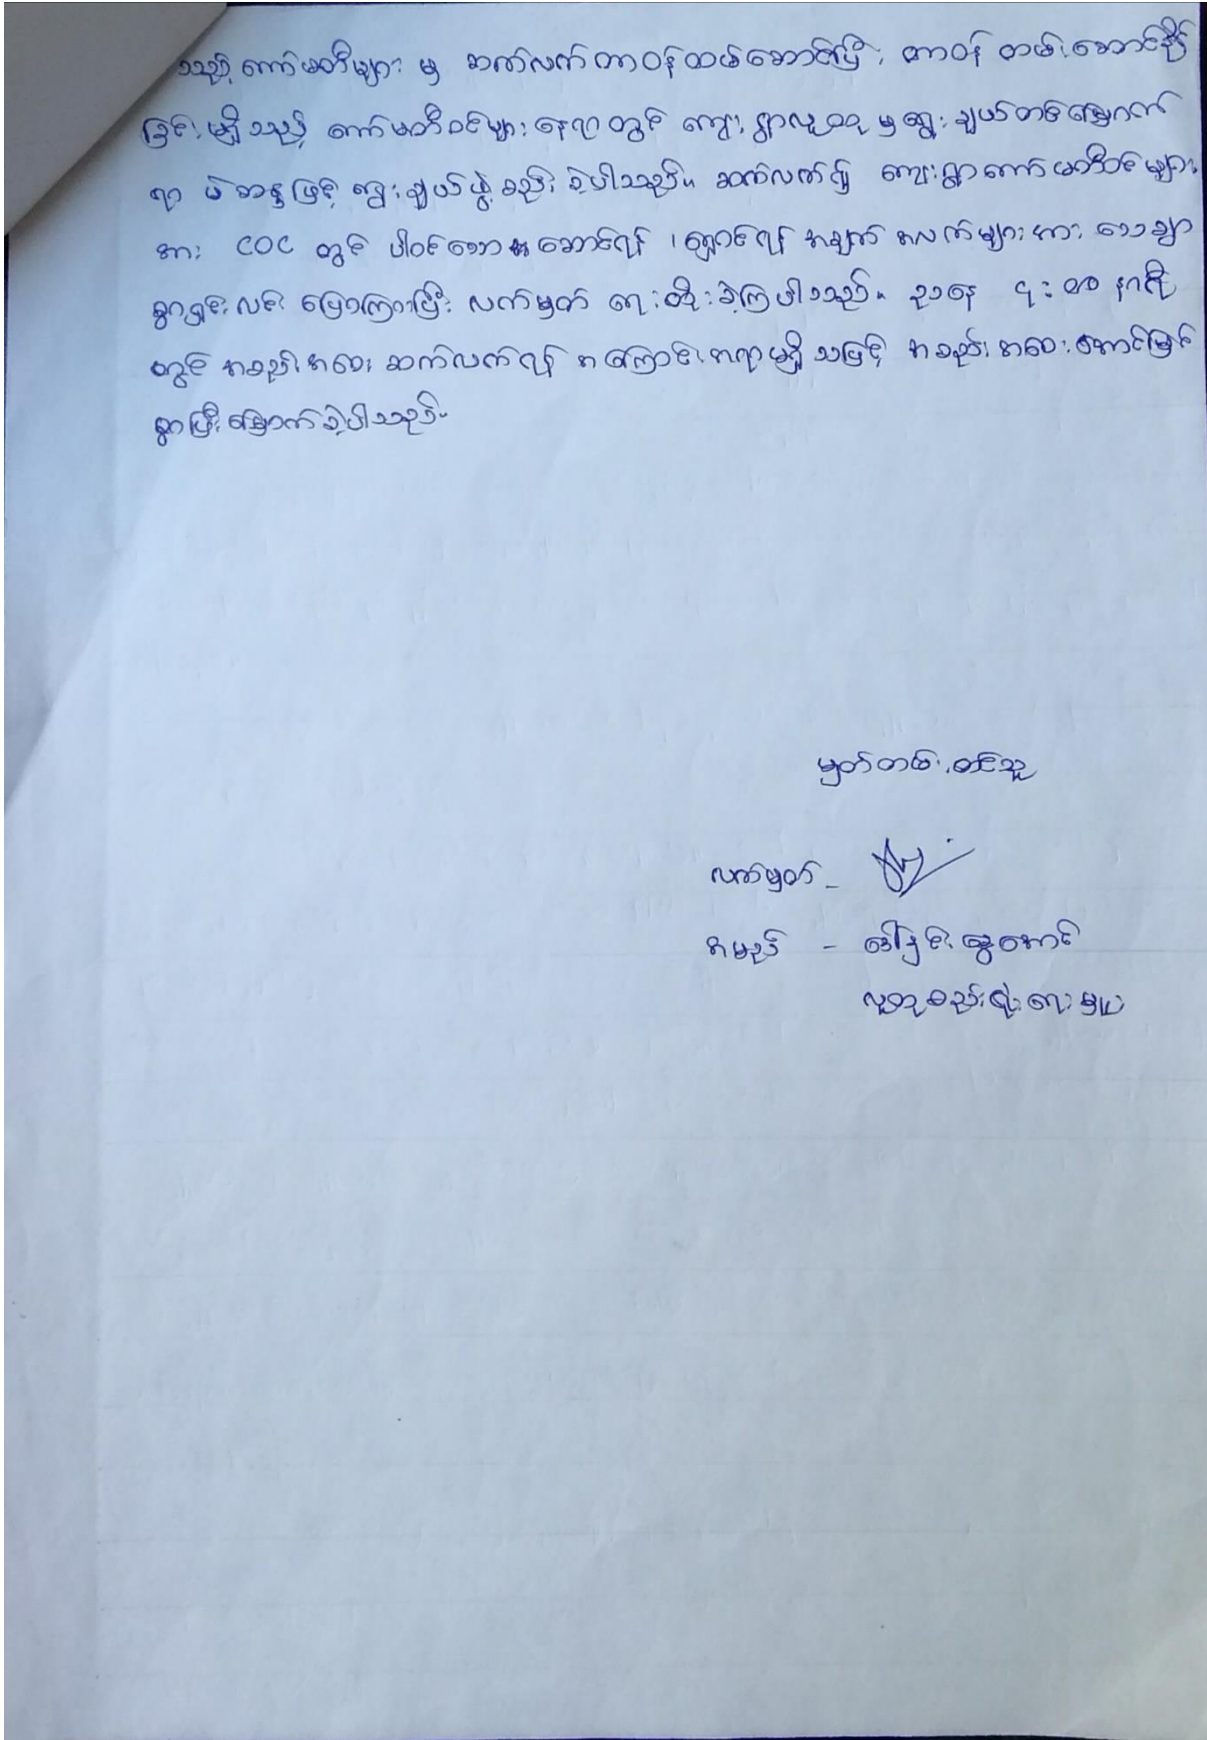 သည့် ကော်မတီများ မှ ဆက်လက်တာဝန်ထမ်းဆောင်ပြီး, တာဝန် ထမ်းဆောင်နိုင်
ခြင်းမရှိသည့် ကော်မတီဝင်များနေရာတွင် ကျေးရွာလူထု မှ ရွေးချယ်တင်မြှောက်
ရာ မဲဆန္ဒဖြင့် ရွေးချယ်ဖွဲ့စည်းခဲ့ပါသည်။ ဆက်လက်၍ ကျေးရွာကော်မတီဝင်များ
အား COC တွင် ပါဝင်သော ဆောင်ရန် ၊ ရှောင်ရန် အချက် အလက်များအား သေချာ
စွာရှင်းလင်း ပြောကြားပြီး လက်မှတ် ရေးထိုးခဲ့ကြပါသည်။ ညနေ ၄း၀၀ နာရီ
တွင် အစည်းအဝေး ဆက်လက်ရန် အကြောင်းအရာမရှိသဖြင့် အစည်းအဝေးအောင်မြင်
စွာပြီးမြောက်ခဲ့ပါသည်။
မှတ်တမ်းတင်သူ
လက်မှတ် -
အမည် - ဒေါ်ငြိမ်းဆွေအောင်
လူထုစည်းရုံးရေးမှူး